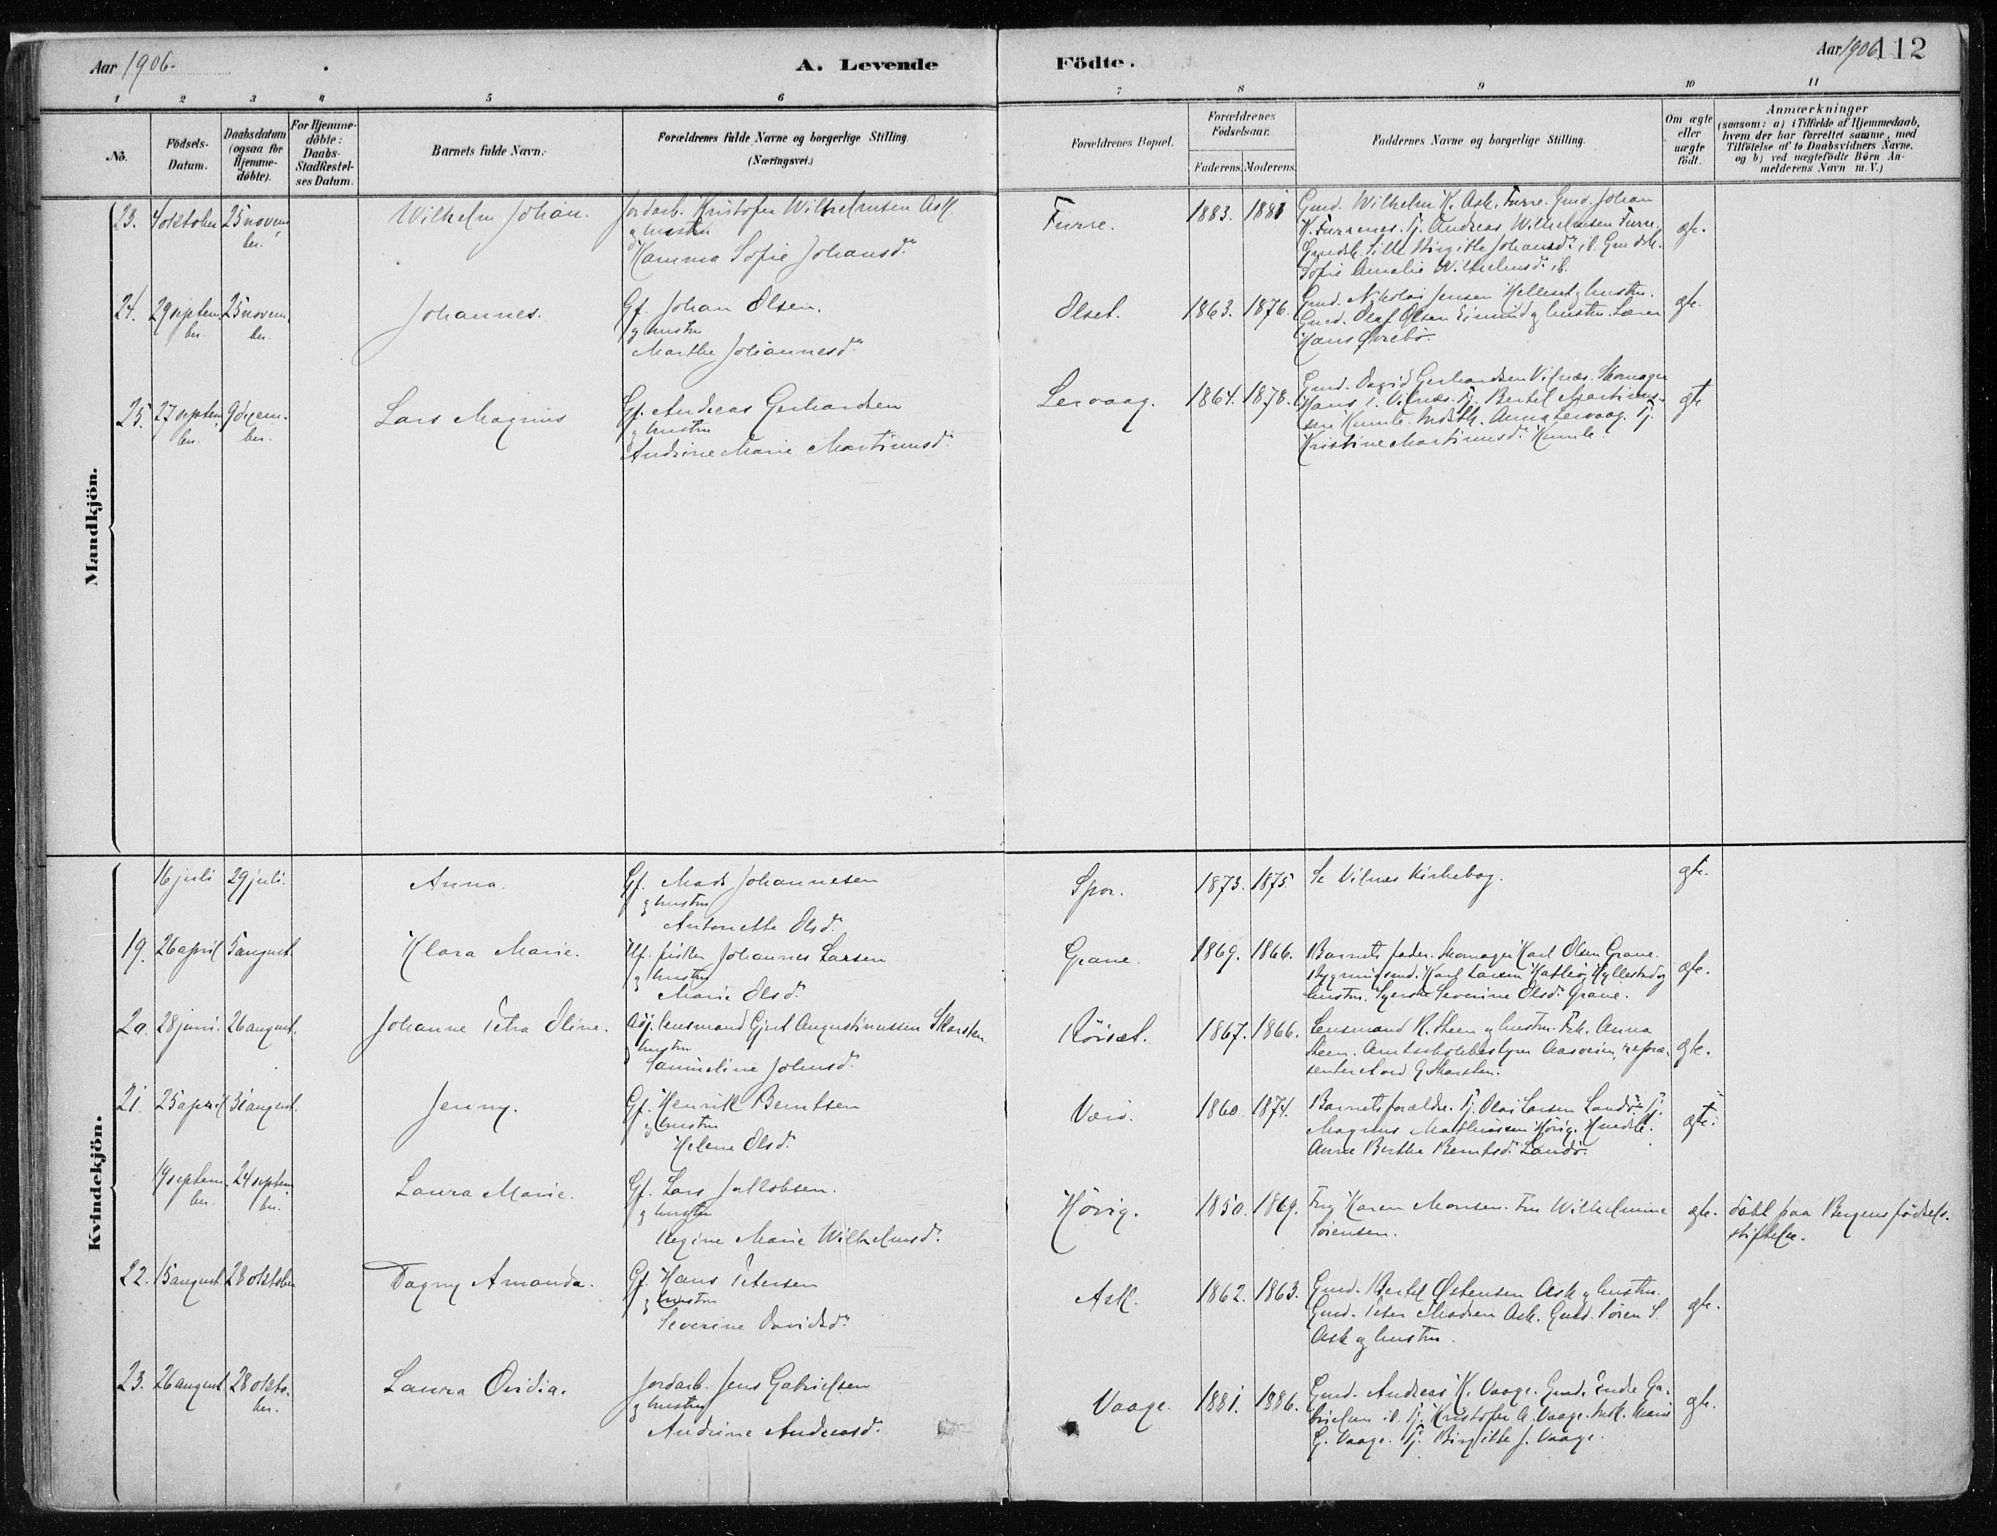 Aar 1906.
A. Levende
Födte.
Aar 1906.
112
1 2 3 4 5 6 7 8 9 10 11
No.
Födsels-
Datum.
Daabsdatum
(ogsaa for
Hjemme-
döbte).
For Hjemme-
döbte:
Daabs-
Stadfæstel-
ses Datum.
Barnets fulde Navn.
Forældrenes fulde Navne og borgerlige Stilling.
(Næringsvei.)
Forældrenes Bopæl.
Forældrenes
Födselsaar.
Faderens.
Moderens.
Faddernes Navne og borgerlige Stilling.
Om ægte
eller
uægte
födt.
Anmærkninger
(saasom: a) i Tilfælde af Hjemmedaab,
hvem der har forrettet samme, med
Tilföielse af to Daabsvidners Navne,
og b) ved uægtefödte Börn An-
melderens Navn m. V.)
Mandkjön.
23. 4 oktober 25 novem-
ber.
Wilhelm Johan.
Jordarb. Kristofer Wilhelmsen Ask
og hustru
Hamma Sofie Johansdr
Furre.
1883. 1881
Gmd. Wilhelm K. Ask. Furre. Gmd. Johan
K. Furrenes. Tj. Andreas Wilhelmsen Furre.
Gmdsk. Sille Birgitte Johansdr ib. Gmdsk.
Sofie Amalie Wilhelmsdr ib.
gte.
24. 29 septem-
ber.
25 novem-
ber.
Johannes.
Gf. Johan Olsen.
og hustru
Marthe Johannesdr
Olset.
1863. 1876.
Gmd. Nikolai Jensen Helleset og hustru.
Gmd. Olaf Olsen og hustru. Lærer
Hans Övrebö.
gte.
25. 27 septem-
ber.
9 decem-
ber.
Lars Magnus
Gf. Andreas Gerhardsen
og hustru
Andrine Marie Martinusdr
Lervaag.
1864. 1878.
Gmd. David Gerhardsen Vilnæs. Skomager
Hans T. Vilnæs. Tj. Bertel Martinus-
sen Humle. Anna Lervaag. Tj.
Kristine Martinusdr Humle.
gte
Kvindekjön.
16 juli 29 juli.
Anna.
Gf. Mads Johannesen
og hustru
Antonette Olsdr
Spor.
1873. 1875.
Se Vilnæs kirkebog.
gte.
19. 26 april 5 august.
Klara Marie.
Hf. fisker Johannes Larsen
og hustru
Marie Olsdr
Grane.
1869. 1866.
Barnets fader. Skomager Karl Olsen Grane.
Bygningsmd. Karl Larsen Hyllestad og
hustru. Syerske Severine Olsdr Grane.
gte.
20. 28 juni. 26 august.
Johanne Petra Oline.
Adj. lensmand Gjert Augustinussen Skarsten
og hustru
Samueline Johnsdr
Körsæt.
1867. 1866.
Lensmand R. Steen og hustru. Frk. Anna
Steen. Amtsskolebestyrer Aasveien, repræ-
senter G Skarsten.
gte.
21. 25 april 31 august.
Jenny.
Gf. Henrik Berntsen
og hustru
Helene Olsdr
Værö.
1860. 1874.
Barnets forældre. Tj. Olai Larsen Landö. Tj.
Magnus Mathiassen Hörvig. Gmdsk.
Anne Berthe Berntsdr Landö.
gte.
19 septem-
ber.
24 septem-
ber.
Laura Marie.
Gf. Lars Jakobsen.
og hustru
Regine Marie Wilhelmsdr
Hörvig.
1850. 1869.
Frøk Karen Monsen. Fru Wilhelmine
Sörensen.
gte.
döbt paa Bergens födsels-
stiftelse.
22. 15 august 28 oktober
Dagny Amanda.
Gf. Hans Petersen
og hustru
Severine Davidsdr
Ask.
1862. 1863.
Gmd. Bertel Östensen Ask og hustru.
Gmd. Peter Madsen Ask. Gmd. Sören S.
Ask og hustru.
gte.
23. 26 august 28 okto-
ber.
Laura Ovidia.
Jordarb. Jens Gabrielsen
og hustru
Andrine Andreasdr
Vaage.
1881. 1886.
Gmd. Andreas K. Vaage. Gmd. Endre Ga-
brielsen ib. Tj. Kristofer A. Vaage. Marie
G. Vaage. Tj. Birgitte J. Vaage.
gte.